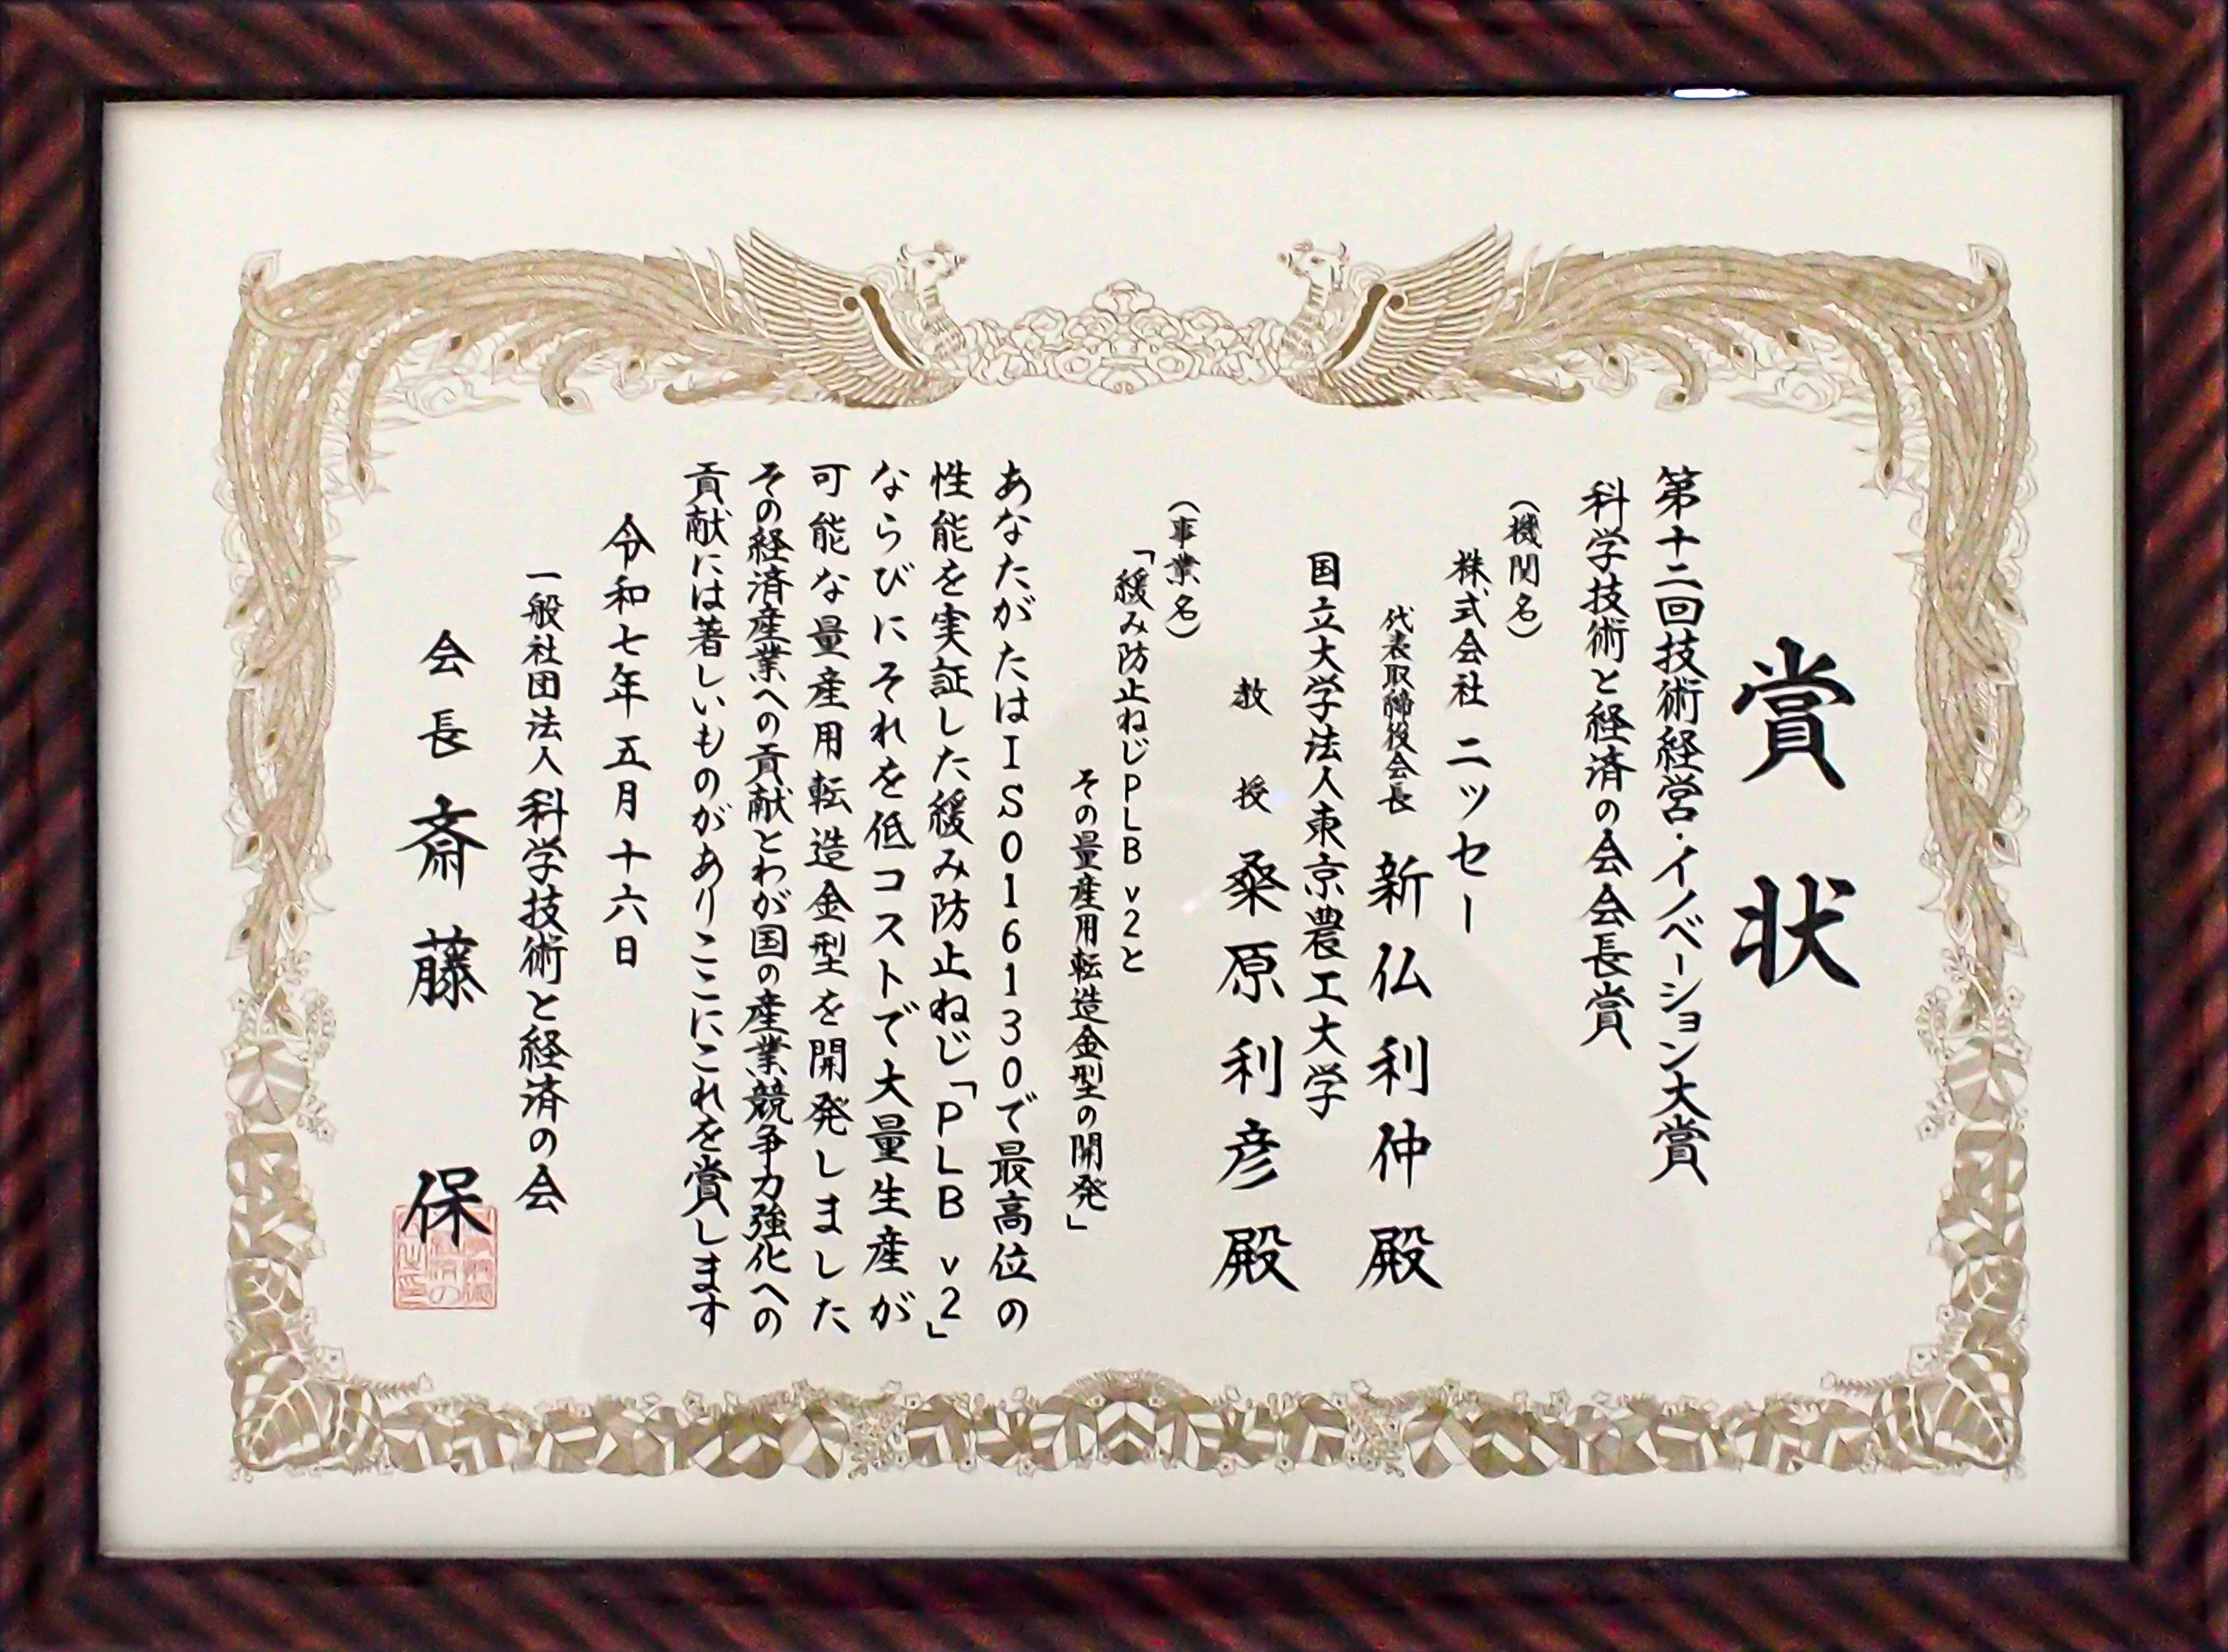 賞状
第十二回技術経営・イノベーション大賞
科学技術と経済の会会長賞
(機関名)
株式会社 ニッセー
代表取締役会長 新仏利仲殿
国立大学法人東京農工大学
教授 桑原利彦殿
(事業名)
「緩み防止ねじPLB v2と
その量産用転造金型の開発」
あなたがたはISO16130で最高位の
性能を実証した緩み防止ねじ「PLB v2」
ならびにそれを低コストで大量生産が
可能な量産用転造金型を開発しました
その経済産業への貢献とわが国の産業競争力強化への
貢献には著しいものがありここにこれを賞します
令和七年五月十六日
一般社団法人科学技術と経済の会
会長 斎藤 保